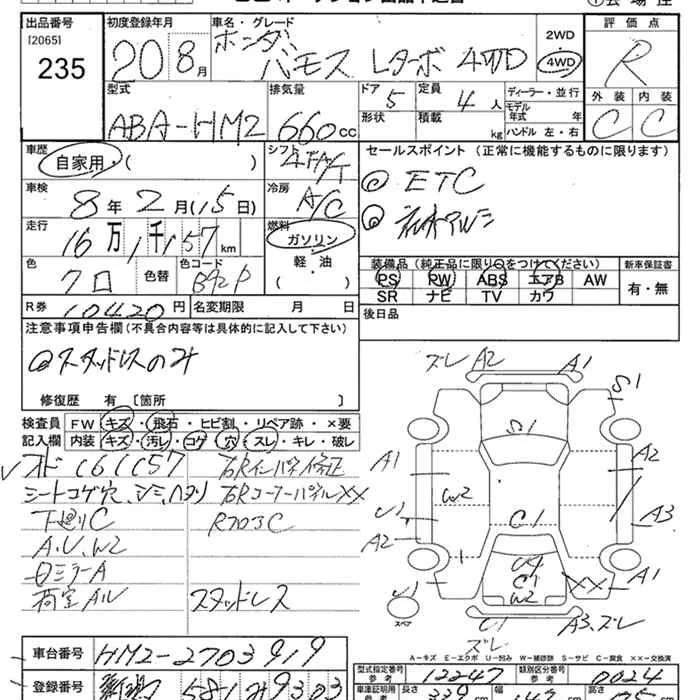 出品番号 初度登録年月 車名・グレード ①会場控
[2065]
235
20 8月
ホンダ
バモス Lターボ 4WD
2WD
4WD
評価点
R
外装 内装
C C
型式 排気量 ドア 定員 ディーラー・並行
ABA-HM2 660cc 5 4人
形状 積載 kg
モデル年式 年
ハンドル 左・右
車歴 自家用・( )
シフト 4FA/T
セールスポイント (正常に機能するものに限ります)
◎ ETC
車検 8年2月(15日)
冷房 A/C
走行 16万1千157km
燃料 ガソリン
軽・油
( )
色 クロ 色替 色コード B92P
装備品 (純正品に限り○をつけてください) 新車保証書
PS PW ABS エアB AW
SR ナビ TV カワ
有・無
R券 10420円 名変期限 月 日
後日品
注意事項申告欄(不具合内容等は具体的に記入して下さい)
スタッドレスのみ
修復歴 有〔箇所 〕
検査員 FW キズ・飛石・ヒビ割・リペア跡・×要
記入欄 内装 キズ・汚レ・コゲ・穴・スレ・キレ・破レ
右Rインパネ修正
シートコゲ穴、シミ、ハタリ 右RコーナーパネルXX
下廻りC Rフロアc
A.U.W2
ミラーA
荷室AU スタッドレス
ズレ A2 A1
S1
S1
A1 A2
W2
U1 C1 A3
A2
U4
C1
W2
XX A1
U1
スペア
C1 A3.ズレ
ズレ
A-キズ E-エクボ U-凹み W-補修跡 S-サビ C-腐食 XX-交換済
車台番号 HM2-2703919
型式指定番号 参考 12247 類別区分番号 参考 0024
登録番号 新潟 581 9303
車庫証明用 長さ 339cm 幅 147cm 高さ